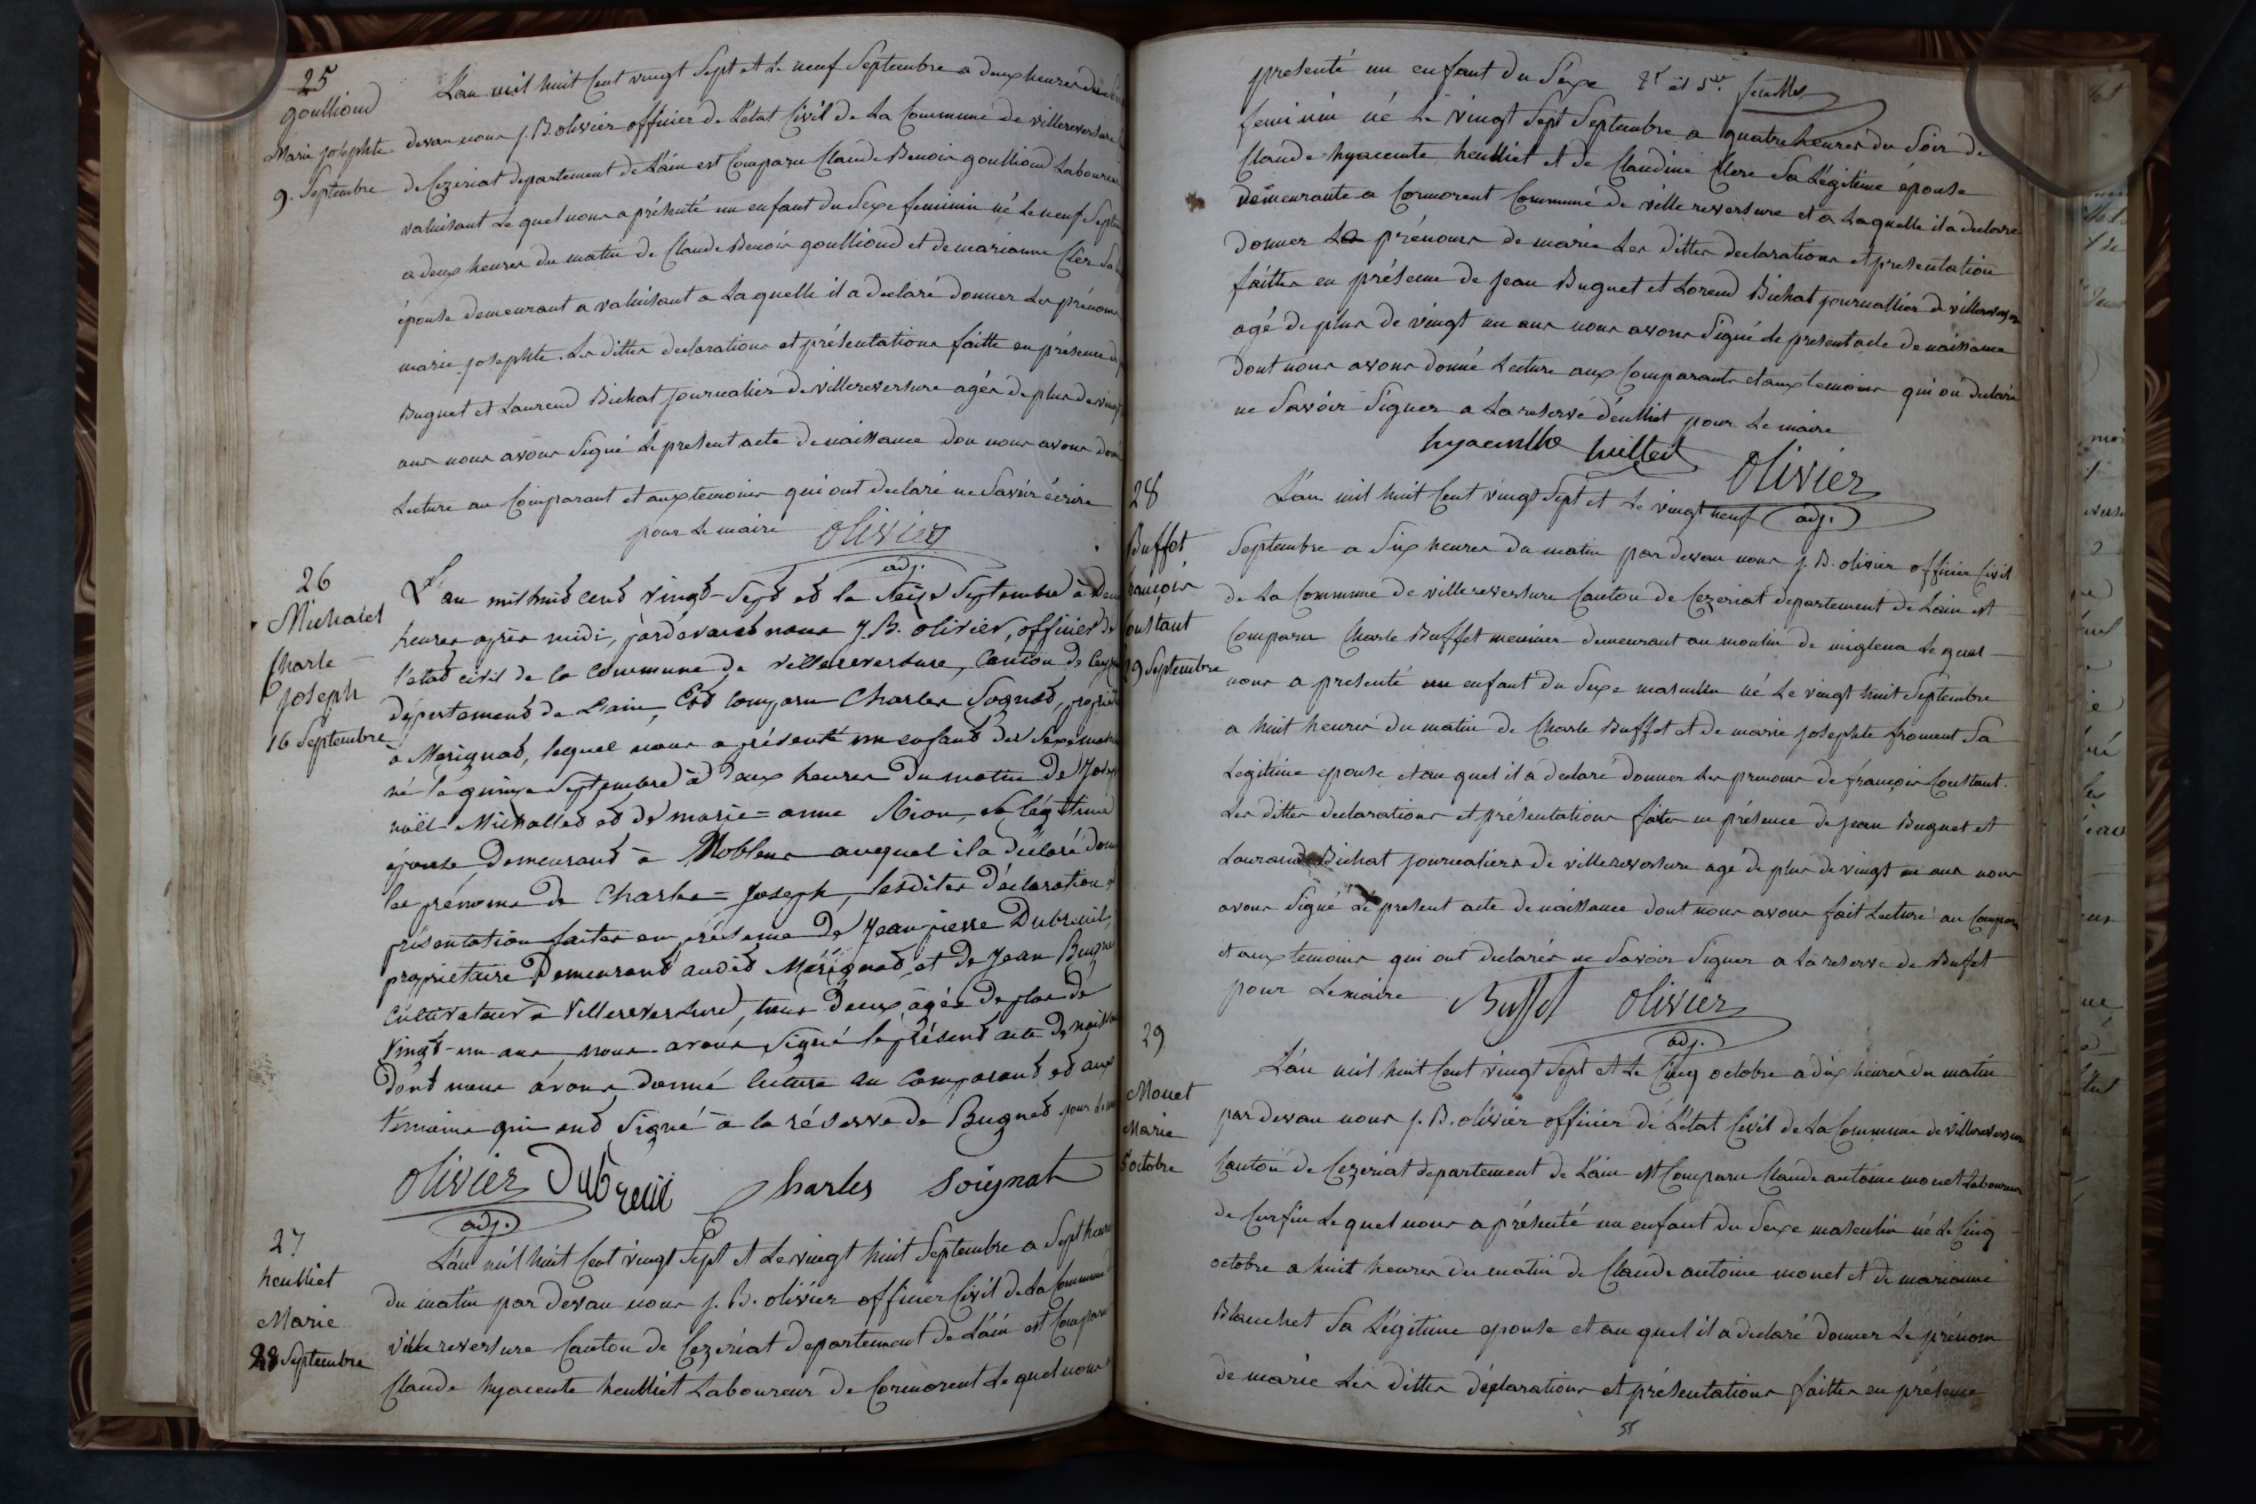 25
goulliond
Marie josephte
9. Septembre
L'an mil huit Cent vingt Sept et Le neuf Septembre a deux heures du
devan nous j. B. olivier officier de L'état Civil de La Commune de villereversure
de Cezeriat département de L'ain est Comparu Claude Benoir goulliond Laboureur
valuisant Le quel nous a présenté un enfant du Sexe feminin né Le neuf Sept
a deux heures du matin de Claude Benoir goulliond et de marianne Cler Sa
épouse demeurant a valuisant a La quelle il a declaré donner Les prénoms
marie josephte. Les dittes declarations et présentations faitte en présence de
Buguet et Laurend Bichat journalier de villereversure agés de plus de vingt
ans nous avons Signé Le présent acte de naissance don nous avons don
Lecture au Comparant et aux temoins qui ont declaré ne Savoir écrire
pour Le maire olivier
adj.
26
Michalet
Charle
joseph
16 Septembre
L'an mil huit cent vingt-Sept et le Seize Septembre à deux
heures après midi, pardevant nous J. B. olivier, officier de
l'état civil de la commune de villereversure, canton de Ceyz
département de L'ain, Est comparu Charles Sognat, propriét
à Merignat, lequel nous a présenté un enfant de Sexe mas
né le quinze Septembre à deux heures du matin de Jose
noël Michallet et de marie=anne Rion, Sa légitime
épouse, Demeurant à Noblens auquel il a déclaré don
les prénoms de Charles=Joseph, lesdites déclaration et
présentation faites en présence de Jean pierre Dubreuil,
propriétaire Demeurant audit Mérignat, et de Jean Bugne
Cultivateur à Villereversure, tous deux agés de plus de
vingt-un ans, nous avons Signé le présent acte de naissan
dont nous avons donné lecture au comparant et aux
temoins qui ont Signé à la réserve de Bugnet pour Le m
olivier Dubreuil Charles Soignat
adj.
27
heulliet
Marie
28 Septembre
L'an mil huit Cent vingt Sept et Le vingt huit Septembre a Sept heures
du matin par devan nous j. B. olivier officier Civil de La Commune
villereversure Canton de Cezeriat departement de L'ain est Comparu
Claude hyacente heulliet Laboureur de Cormorent Le quel nous
presenté un enfant du Séxe
feminin né Le vingt Sept Septembre a quatre heures du Soir de
Claude hyacente heulliet et de Claudine Clere Sa Légitime épouse
demeurante a Cormorent Commune de villereversure et a Laquelle il a declare
donner Le prénoms de marie Les dittes declarations et presentation
faittes en présence de jean Buguet et Lorend Bichat journallier de villereversure
agé de plus de vingt un ans nous avons Signé Le present acte de naissance
dont nous avons donné Lecture aux Comparants et aux temoins qui on declare
ne Savoir Signer a La reserve d'eulliet pour Le maire
hyacinthe huilleit olivier
adj.
28
Buffet
françois
Constant
29 Septembre
L'an mil huit Cent vingt Sept et Le vingt neuf
Septembre a Six heures du matin par devan nous j. B. olivier officier Civil
de La Commune de villereversure Canton de Cezeriat departement de L'ain est
Comparu Charle Buffet meunier demeurant au moulin de miglena Le quel
nous a presenté un enfant du Sexe masculin né Le vingt huit Septembre
a huit heures du matin de Charle Buffet et de marie josephte froment Sa
Legitime epouse et au quel il a declaré donner Les prenoms de françois Constant.
Les dittes declarations et présentations faites en présence de jean Buguet et
Laurand Bichat journaliers de villereversure agé de plus de vingt un ans nous
avons Signé Le present acte de naissance dont nous avons fait Lecture au Compar
et aux temoins qui ont declarés ne Savoir Signer a La reserve de Buffet
pour Le maire Buffet olivier
adj.
29
Monet
Marie
5 octobre
L'an mil huit Cent vingt Sept et Le Cinq octobre a dix heures du matin
par devan nous j. B. olivier officier de L'état Civil de La Commune de villereversure
Canton de Cezeriat departement de L'ain est Comparu Claude antoine monet Laboureur
de Curfin Le quel nous a présenté un enfant du Sexe masculin né Le Cinq
octobre a huit heures du matin de Claude antoine monet et de marianne
Blanchet Sa Légitime epouse et au quel il a declaré donner Le prénom
de marie Les dittes déclarations et présentations faittes en présence